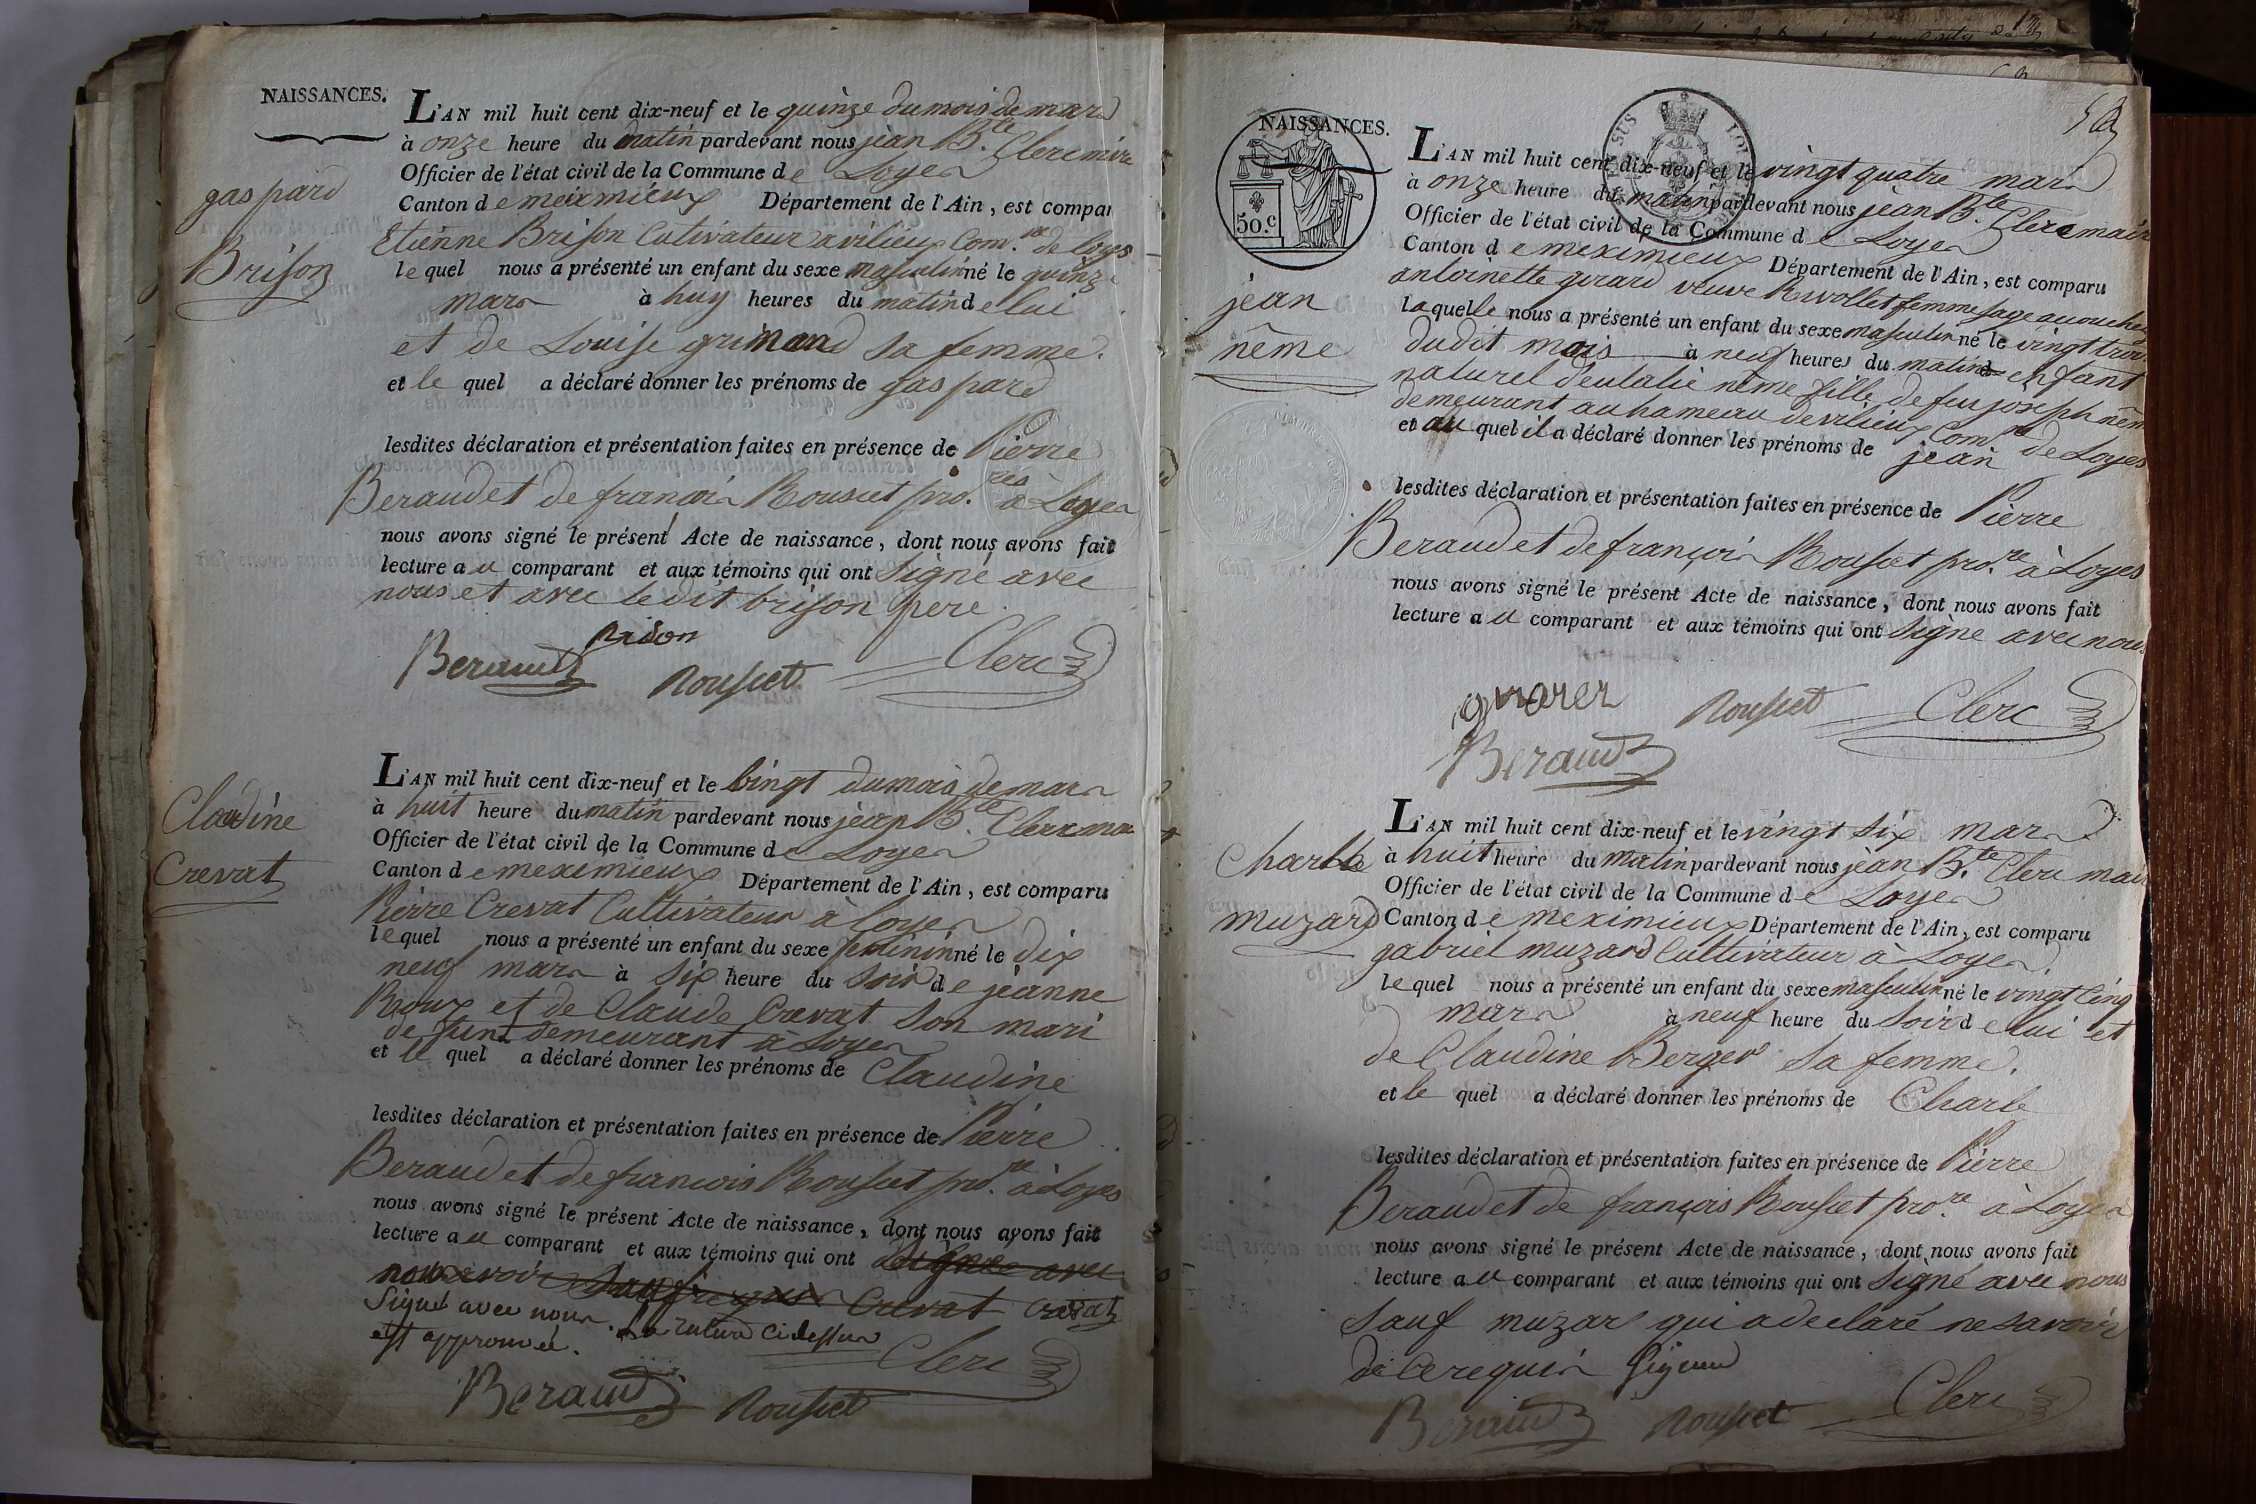 NAISSANCES.
L'AN mil huit cent dix-neuf et le quinze du mois de mars
à onze heure du matin pardevant nous jean B.te Clerc mire
Officier de l'état civil de la Commune de Loyes
Canton de meximieux Département de l'Ain, est compar
Etienne Brison Cutivateur a vilieux Com.ne de loyes
gaspard
Brison
lequel nous a présenté un enfant du sexe masculin né le quinze
mars à huy heures du matin de lui
et de Louise grimand sa femme.
et le quel a déclaré donner les prénoms de gaspard
lesdites déclaration et présentation faites en présence de Pierre
Beraud et de francois Rousset pro.res à Loyes
nous avons signé le présent Acte de naissance, dont nous avons fait
lecture au comparant et aux témoins qui ont Signé avec
nous et avec ledit brison pere.
Brison
Beraud Rousset Clerc
L'AN mil huit cent dix-neuf et le vingt du mois de mars
à huit heure du matin pardevant nous jean B.te Clerc mai
Officier de l'état civil de la Commune de Loyes
Canton de meximieux Département de l'Ain, est comparu
Pierre Crevat Cultivateur à Loyes
Claudine
Crevat
lequel nous a présenté un enfant du sexe feminin né le dix
neuf mars à six heure du soir de jeanne
Roux et de Claude Crevat son mari
defunt demeurant à Loyes
et le quel a déclaré donner les prénoms de Claudine
lesdites déclaration et présentation faites en présence de Pierre
Beraud et de francois Rousset pro.re à Loyes
nous avons signé le présent Acte de naissance, dont nous avons fait
lecture au comparant et aux témoins qui ont signé avec
Crevat crevat
Signé avec nous. La rature ci dessus
est approuvée.
Clerc
Beraud Rousset
NAISSANCES.
50.c
L'AN mil huit cent dix-neuf et le vingt quatre mars
à onze heure du matin pardevant nous jean B.te Clerc maire
Officier de l'état civil de la Commune de Loyes
Canton de meximieux Département de l'Ain, est comparu
antoinette girard veuve Rivollet femme sage acoucheu
jean
nême
laquelle nous a présenté un enfant du sexe masculin né le vingt trois
dudit mois à neuf heures du matin enfant
naturel d'eulalie nême fille de feu joseph nême
demeurant au hameau de vilieux Com.ne de Loyes
et au quel il a déclaré donner les prénoms de jean
lesdites déclaration et présentation faites en présence de Pierre
Beraud et de françois Rousset pro.re à Loyes
nous avons signé le présent Acte de naissance, dont nous avons fait
lecture au comparant et aux témoins qui ont Signé avec nous
Rousset Clerc
Beraud
L'AN mil huit cent dix-neuf et le vingt six mars
à huit heure du matin pardevant nous jean B.te Clerc mair
Officier de l'état civil de la Commune de Loyes
Canton de meximieux Département de l'Ain, est comparu
gabriel muzard Cultivateur à Loyes.
Charle
muzard
lequel nous a présenté un enfant du sexe masculin né le vingt cinq
mars à neuf heure du soir de lui et
de Claudine Berger sa femme.
et le quel a déclaré donner les prénoms de Charle
lesdites déclaration et présentation faites en présence de Pierre
Beraud et de françois Rousset pro.re à Loyes
nous avons signé le présent Acte de naissance, dont nous avons fait
lecture au comparant et aux témoins qui ont Signé avec nous
Sauf muzar qui a declaré ne savoir
de ce requis Signer
Beraud Rousset Clerc